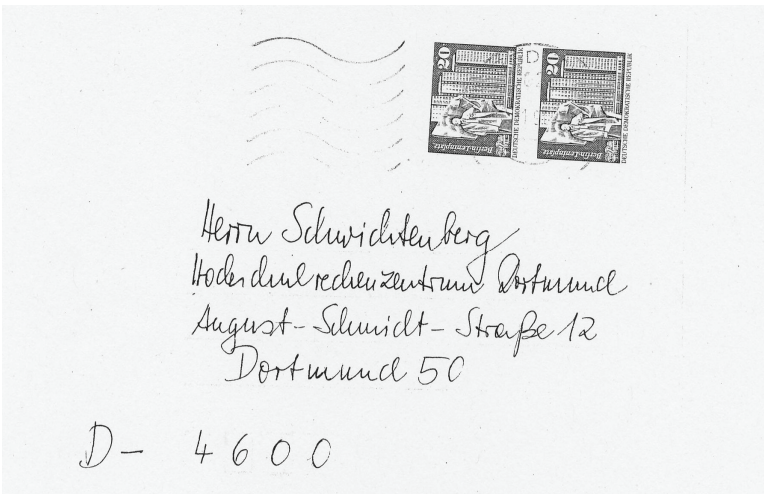 20
Berlin-Leninplatz
DEUTSCHE DEMOKRATISCHE REPUBLIK
20
Berlin-Leninplatz
DEUTSCHE DEMOKRATISCHE REPUBLIK
Herrn Schwichtenberg
Hochschulrechenzentrum Dortmund
August-Schmidt-Straße 12
Dortmund 50
D- 4600